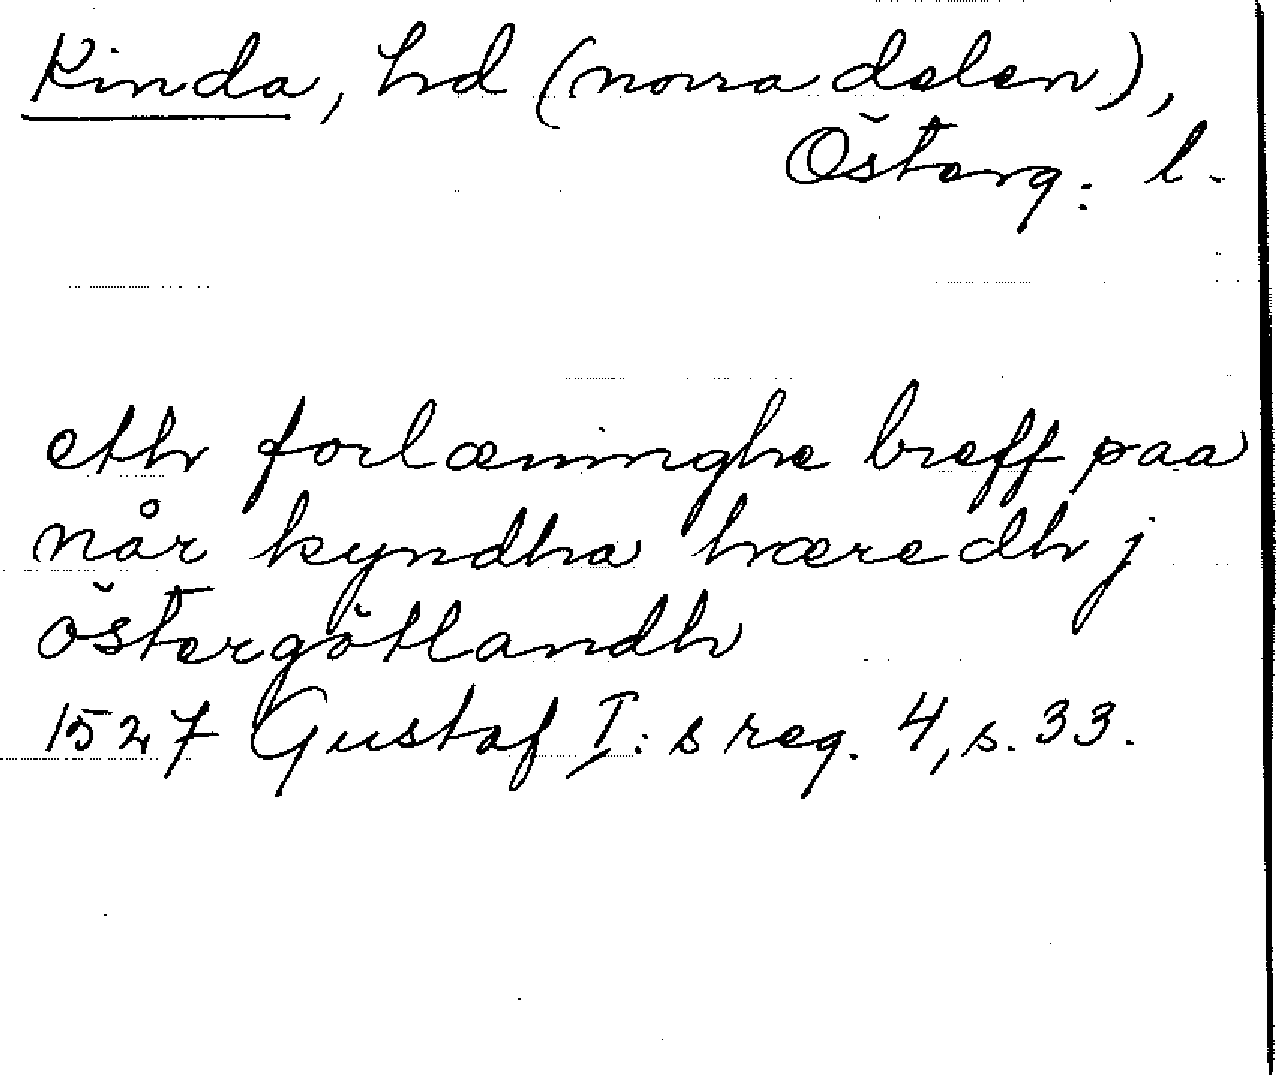 Kinda, hd (norra delen),
Österg. l.
eth forlæninghe breff paa
når kyndha hæredh j
östergötlandh
1527 Gustaf I:s reg. 4, s. 33.